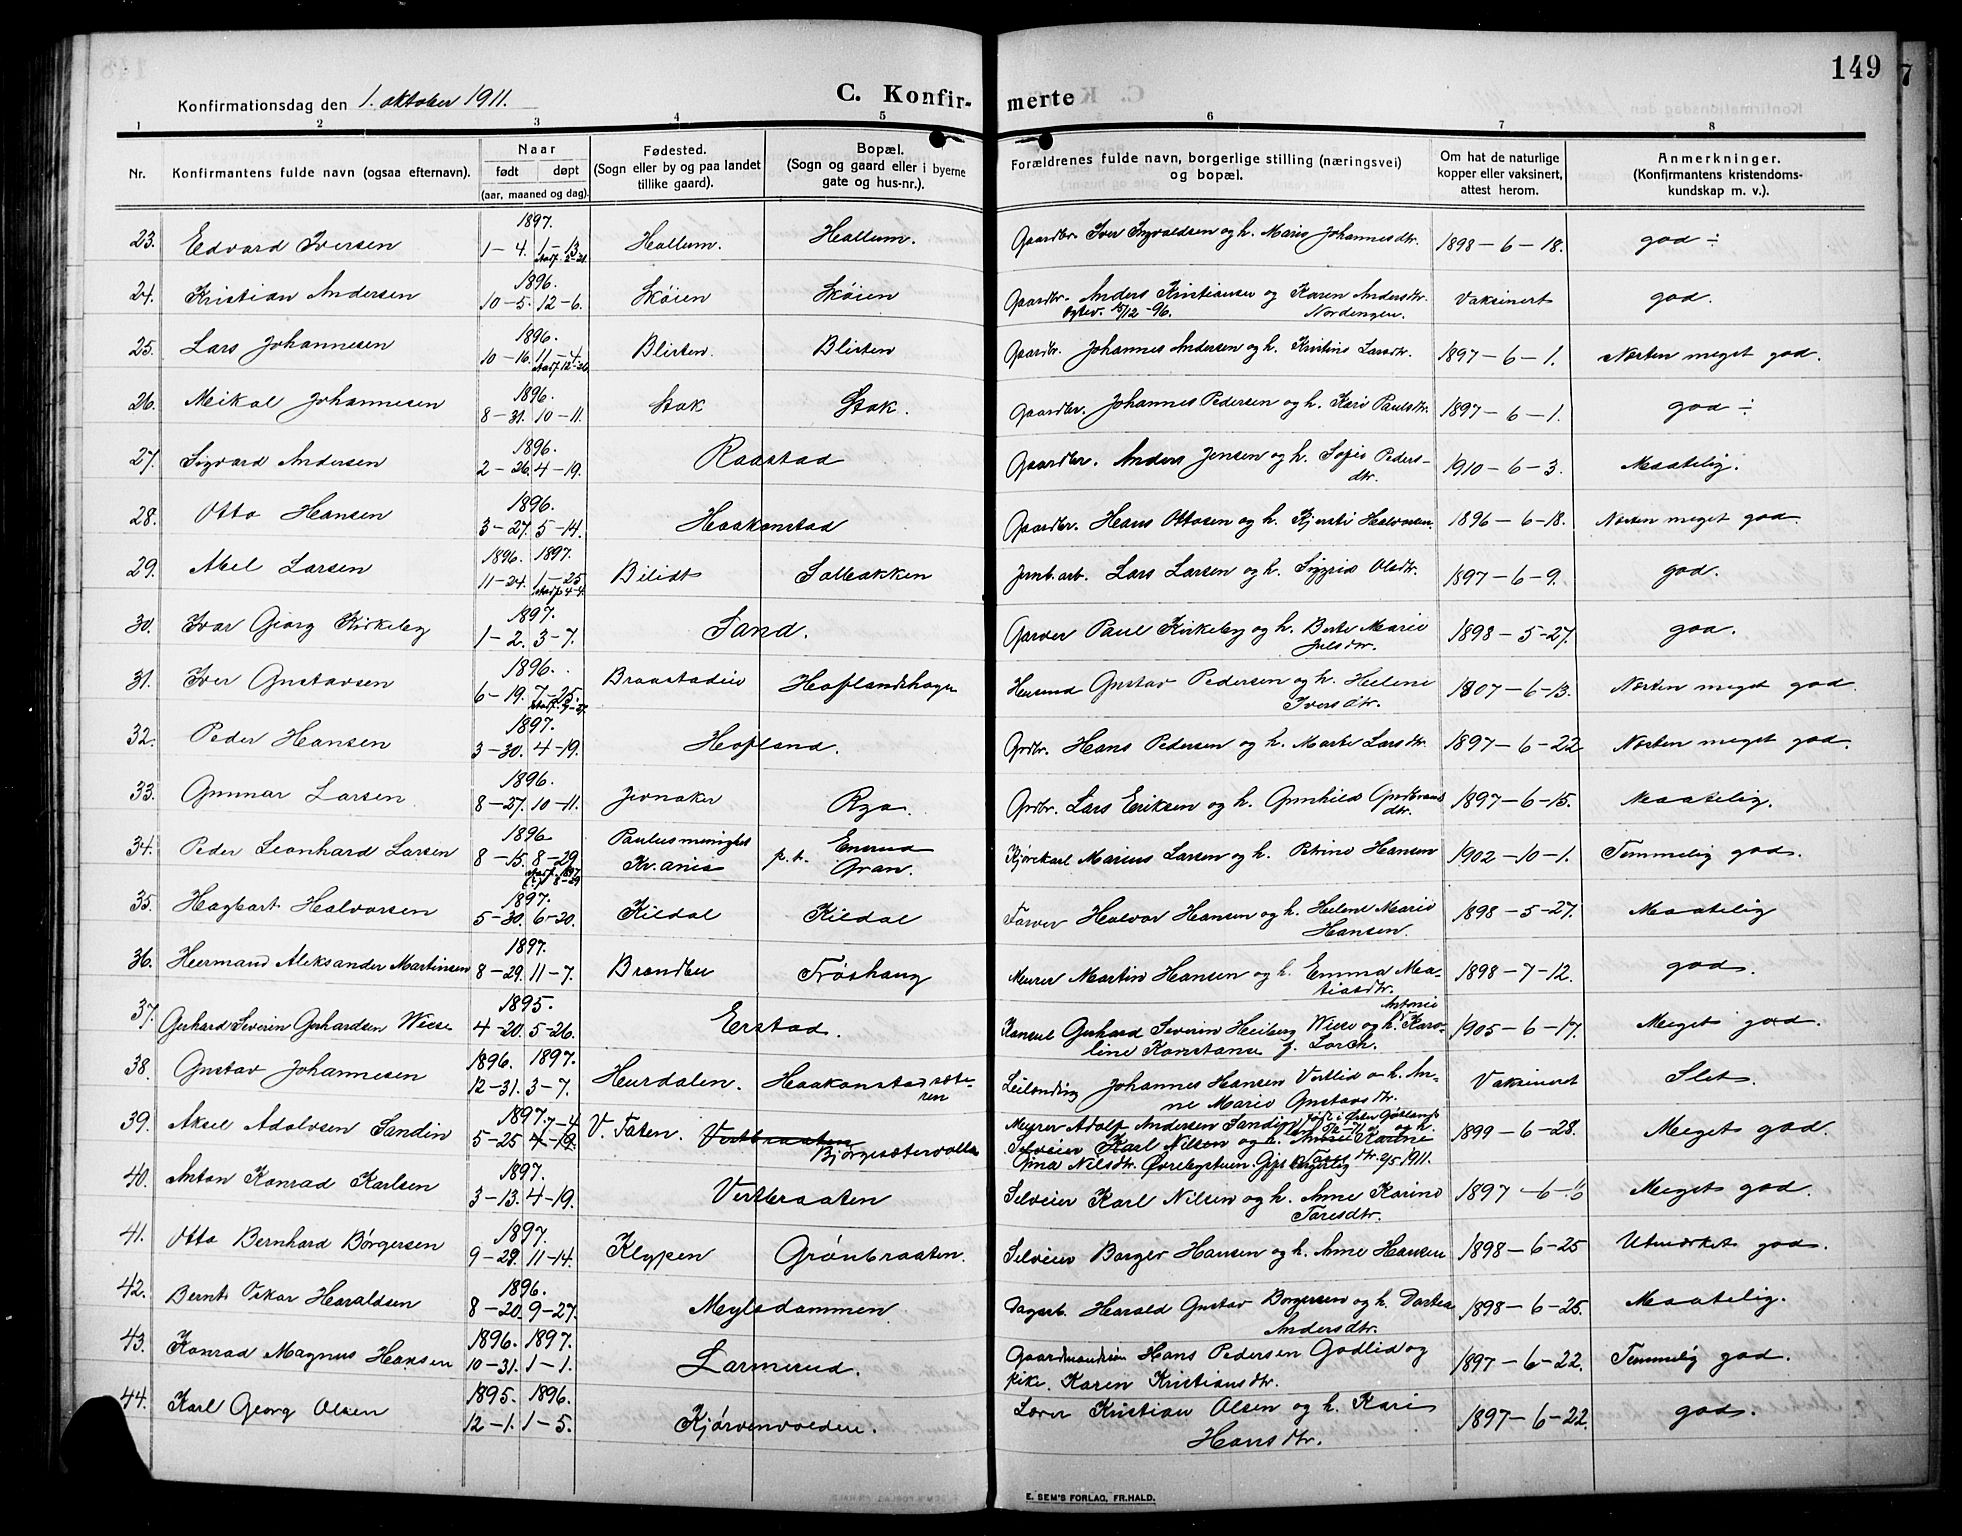 149
Konfirmationsdag den 1. oktober 1911.
C. Konfir- merte
1 2 3 4 5 6 7 8
Nr. Konfirmantens fulde navn (ogsaa efternavn). Naar født døpt (aar, maaned og dag). Fødested. (Sogn eller by og paa landet tillike gaard). Bopæl. (Sogn og gaard eller i byerne gate og hus-nr.). Forældrenes fulde navn, borgerlige stilling (næringsvei) og bopæl. Om hat de naturlige kopper eller vaksinert, attest herom. Anmerkninger. (Konfirmantens kristendoms-kundskap m. v.).
1897.
23. Edvard Iversen 1-4. 1-13 stadf. 2-21. Hallum. Hallum. Gaardbr. Iver Ingvaldsen og h. Marie Johannesdtr. 1898-6-18. god ÷
1896.
24. Kristian Andersen 10-5. 12-6. Sköien Sköien Gaardbr. Anders Kristiansen og Karen Andersdtr. Vaksinert god.
Nordengen.
1896.
25. Lars Johannesen 10-16. 11-4 Blisten. Blisten Gaardbr. Johannes Andersen og h. Kristine Larsdtr. 1897-6-1. Næsten meget god.
1896.
26. Mikal Johannesen 8-31. 10-11. Stak Stak. Gaardbr. Johannes Pedersen og h. Kari Paulsdtr. 1897-6-1. god ÷
1896.
27. Sigvard Andersen 2-26. 4-19. Raastad Gaardbr. Anders Jensen og h. Sofie Peders- 1910-6-3. Maatelig.
dtr.
1896.
28. Otto Hansen 3-27. 5-14. Haakonstad Gaardbr. Hans Ottosen og h. Kjersti Halvorsen. 1896-6-18. Næsten meget god.
1896. 1897.
29. Abel Larsen 11-24. 1-25. stadf. 4-4. Bilidt Solbakken Jernb.arb. Lars Larsen og h. Siggrid Olsdtr. 1897-6-9. god.
1897.
30. Ivar Georg Kirkeby 1-2. 3-7. Sand. Garver Paul Kirkeby og h. Berte Marie 1898-5-27. god.
Julsdtr.
1896.
31. Iver Gustavsen 6-19. 7-25. Braastadeie Hoflandshagen Husmd Gustav Pedersen og h. Helene 1807-6-13. Næsten meget god.
Iversdtr.
1897.
32. Peder Hansen 3-30. 4-19. Hofland. Grdbr. Hans Pedersen og h. Marte Larsdtr. 1897-6-22 Næsten meget god.
1896.
33. Gunnar Larsen 8-27. 10-11. Jevnaker Rya. Grdbr. Lars Eriksen og h. Gunhild Gudbrands 1897-6-15. Maatelig.
dtr.
1896.
34. Peder Leonhard Larsen 8-15. 8-29 Paulusmenighet Kr.ania p.t. Enerud Gran. Kjørekarl Marius Larsen og h. Petrine Hansen 1902-10-1. Temmelig god.
1897.
35. Hagbart Halvorsen 5-30. 6-20. Kildal Kildal Farver Halvor Hansen og h. Helene Marie 1898-5-27. Maatelig
Hansen.
1897.
36. Hermand Aleksander Martinsen 8-29. 11-7. Brandbu Tröshaug Murer Martin Hansen og h. Emma Ma- 1898-7-12. god.
tiasdtr.
1895.
37. Gerhard Severin Gerhardsen Wiese 4-20. 5-26. Erstad. Konsul Gerhard Severin Heiberg Wiese og h. Antonie Karo- 1905-6-17. Meget god.
line Konstanse f. Lorch.
1896. 1897.
38. Gustav Johannesen 12-31. 3-7. Hurdalen. Haakonstadsæte-ren Leilending Johannes Hansen Vestlid o h. An- Vaksineret Slet.
ne Marie Gustavsdtr.
1897. 7-4
39. Aksel Adolvsen Sandin 5-25 4-19. V. Toten. Vestbraaten Bjørgesætervolla Murer Adolf Andersen Sandin og h. 1899-6-28. Meget god.
Selveier Karl Nilsen og h. Anne Karine
Gina Nilsdtr. Øvrebystuen. Tores dtr. 2/5 1911.
1897.
40. Anton Konrad Karlsen 3-13. 4-19. Vestbraaten Selveier Karl Nilsen og h. Anne Karine 1897-6-10 Meget god.
Toresdtr.
1897.
41. Otto Bernhard Børgersen 9-29. 11-14. Klypen Grönbraaten. Selveier Borger Hansen og h. Anne Hansen 1898-6-25 Utmerket god.
1896.
42. Bernt Oskar Haraldsen 8-20. 9-27. Meylsdammen. Dagarb. Harald Gustav Borgersen og h. Dortea 1898-6-25. Maatelig.
Andersdtr.
1896. 1897.
43. Konrad Magnus Hansen 10-31. 1-1. Larmerud. Gaardmandsøn Hans Pedersen Godlid og 1897-6-22. Temmelig god.
pike. Karen Kristiansdtr.
1895. 1896.
44. Karl Georg Olsen 12-1. 1-5. Kjørvenvolden. Lærer Kristian Olsen og h. Kari 1897-6-22. god.
Hansdtr.
E. SEM'S FORLAG, FR.HALD.